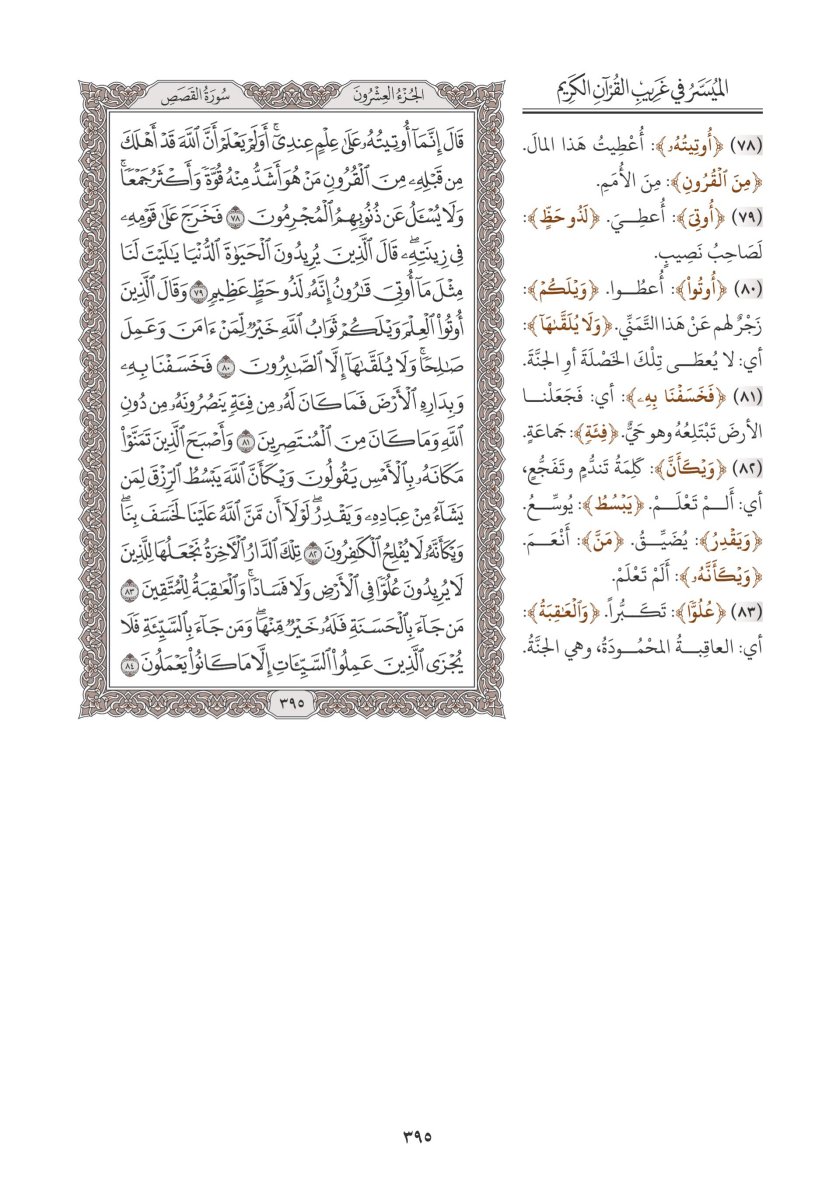 الميسر في غريب القرآن الكريم
(٧٨) ﴿أُوتِيتُهُۥ﴾: أُعْطِيتُ هَذا المالَ.
﴿مِنَ ٱلْقُرُونِ﴾: مِنَ الأُمَمِ.
(٧٩) ﴿أُوتِىَ﴾: أُعطِـيَ. ﴿لَذُو حَظٍّ﴾:
لَصَاحِبُ نَصِيبٍ.
(٨٠) ﴿أُوتُوا۟﴾: أُعطُـوا. ﴿وَيْلَكُمْ﴾:
زَجْرٌ لهم عَنْ هَذا التَّمَنِّي. ﴿وَلَا يُلَقَّىٰهَآ﴾:
أي: لا يُعطَـى تِلْكَ الخَصْلَةَ أوِ الجنَّةَ.
(٨١) ﴿فَخَسَفْنَا بِهِۦ﴾: أي: فَجَعَلْنـا
الأرضَ تَبْتَلِعُهُ وهو حَيٌّ. ﴿فِئَةٍ﴾: جَماعَةٍ.
(٨٢) ﴿وَيْكَأَنَّ﴾: كَلِمَةُ تَندُّمٍ وتَفَجُّعٍ،
أي: أَلـمْ تَعْلَـمْ. ﴿يَبْسُطُ﴾: يُوسِّـعُ.
﴿وَيَقْدِرُ﴾: يُضَيِّـقُ. ﴿مَنَّ﴾: أَنْعَـمَ.
﴿وَيْكَأَنَّهُۥ﴾: أَلَمْ تَعْلَمْ.
(٨٣) ﴿عُلُوًّا﴾: تَكَـبُّراً. ﴿وَٱلْعَٰقِبَةُ﴾:
أي: العاقِبـةُ المحْمُـودَةُ، وهي الجنَّةُ.
الجُزْءُ العِشْرُونَ
سُورَةُ القَصَصِ
قَالَ إِنَّمَآ أُوتِيتُهُۥ عَلَىٰ عِلْمٍ عِندِىٓ ۚ أَوَلَمْ يَعْلَمْ أَنَّ ٱللَّهَ قَدْ أَهْلَكَ
مِن قَبْلِهِۦ مِنَ ٱلْقُرُونِ مَنْ هُوَ أَشَدُّ مِنْهُ قُوَّةً وَأَكْثَرُ جَمْعًا ۚ
وَلَا يُسْـَٔلُ عَن ذُنُوبِهِمُ ٱلْمُجْرِمُونَ ٧٨ فَخَرَجَ عَلَىٰ قَوْمِهِۦ
فِى زِينَتِهِۦ ۖ قَالَ ٱلَّذِينَ يُرِيدُونَ ٱلْحَيَوٰةَ ٱلدُّنْيَا يَٰلَيْتَ لَنَا
مِثْلَ مَآ أُوتِىَ قَٰرُونُ إِنَّهُۥ لَذُو حَظٍّ عَظِيمٍ ٧٩ وَقَالَ ٱلَّذِينَ
أُوتُوا۟ ٱلْعِلْمَ وَيْلَكُمْ ثَوَابُ ٱللَّهِ خَيْرٌ لِّمَنْ ءَامَنَ وَعَمِلَ
صَٰلِحًا ۚ وَلَا يُلَقَّىٰهَآ إِلَّا ٱلصَّٰبِرُونَ ٨٠ فَخَسَفْنَا بِهِۦ
وَبِدَارِهِ ٱلْأَرْضَ فَمَا كَانَ لَهُۥ مِن فِئَةٍ يَنصُرُونَهُۥ مِن دُونِ
ٱللَّهِ وَمَا كَانَ مِنَ ٱلْمُنتَصِرِينَ ٨١ وَأَصْبَحَ ٱلَّذِينَ تَمَنَّوْا۟
مَكَانَهُۥ بِٱلْأَمْسِ يَقُولُونَ وَيْكَأَنَّ ٱللَّهَ يَبْسُطُ ٱلرِّزْقَ لِمَن
يَشَآءُ مِنْ عِبَادِهِۦ وَيَقْدِرُ ۖ لَوْلَآ أَن مَّنَّ ٱللَّهُ عَلَيْنَا لَخَسَفَ بِنَا ۖ
وَيْكَأَنَّهُۥ لَا يُفْلِحُ ٱلْكَٰفِرُونَ ٨٢ تِلْكَ ٱلدَّارُ ٱلْـَٔاخِرَةُ نَجْعَلُهَا لِلَّذِينَ
لَا يُرِيدُونَ عُلُوًّا فِى ٱلْأَرْضِ وَلَا فَسَادًا ۚ وَٱلْعَٰقِبَةُ لِلْمُتَّقِينَ ٨٣
مَن جَآءَ بِٱلْحَسَنَةِ فَلَهُۥ خَيْرٌ مِّنْهَا ۖ وَمَن جَآءَ بِٱلسَّيِّئَةِ فَلَا
يُجْزَى ٱلَّذِينَ عَمِلُوا۟ ٱلسَّيِّـَٔاتِ إِلَّا مَا كَانُوا۟ يَعْمَلُونَ ٨٤
٣٩٥
٣٩٥